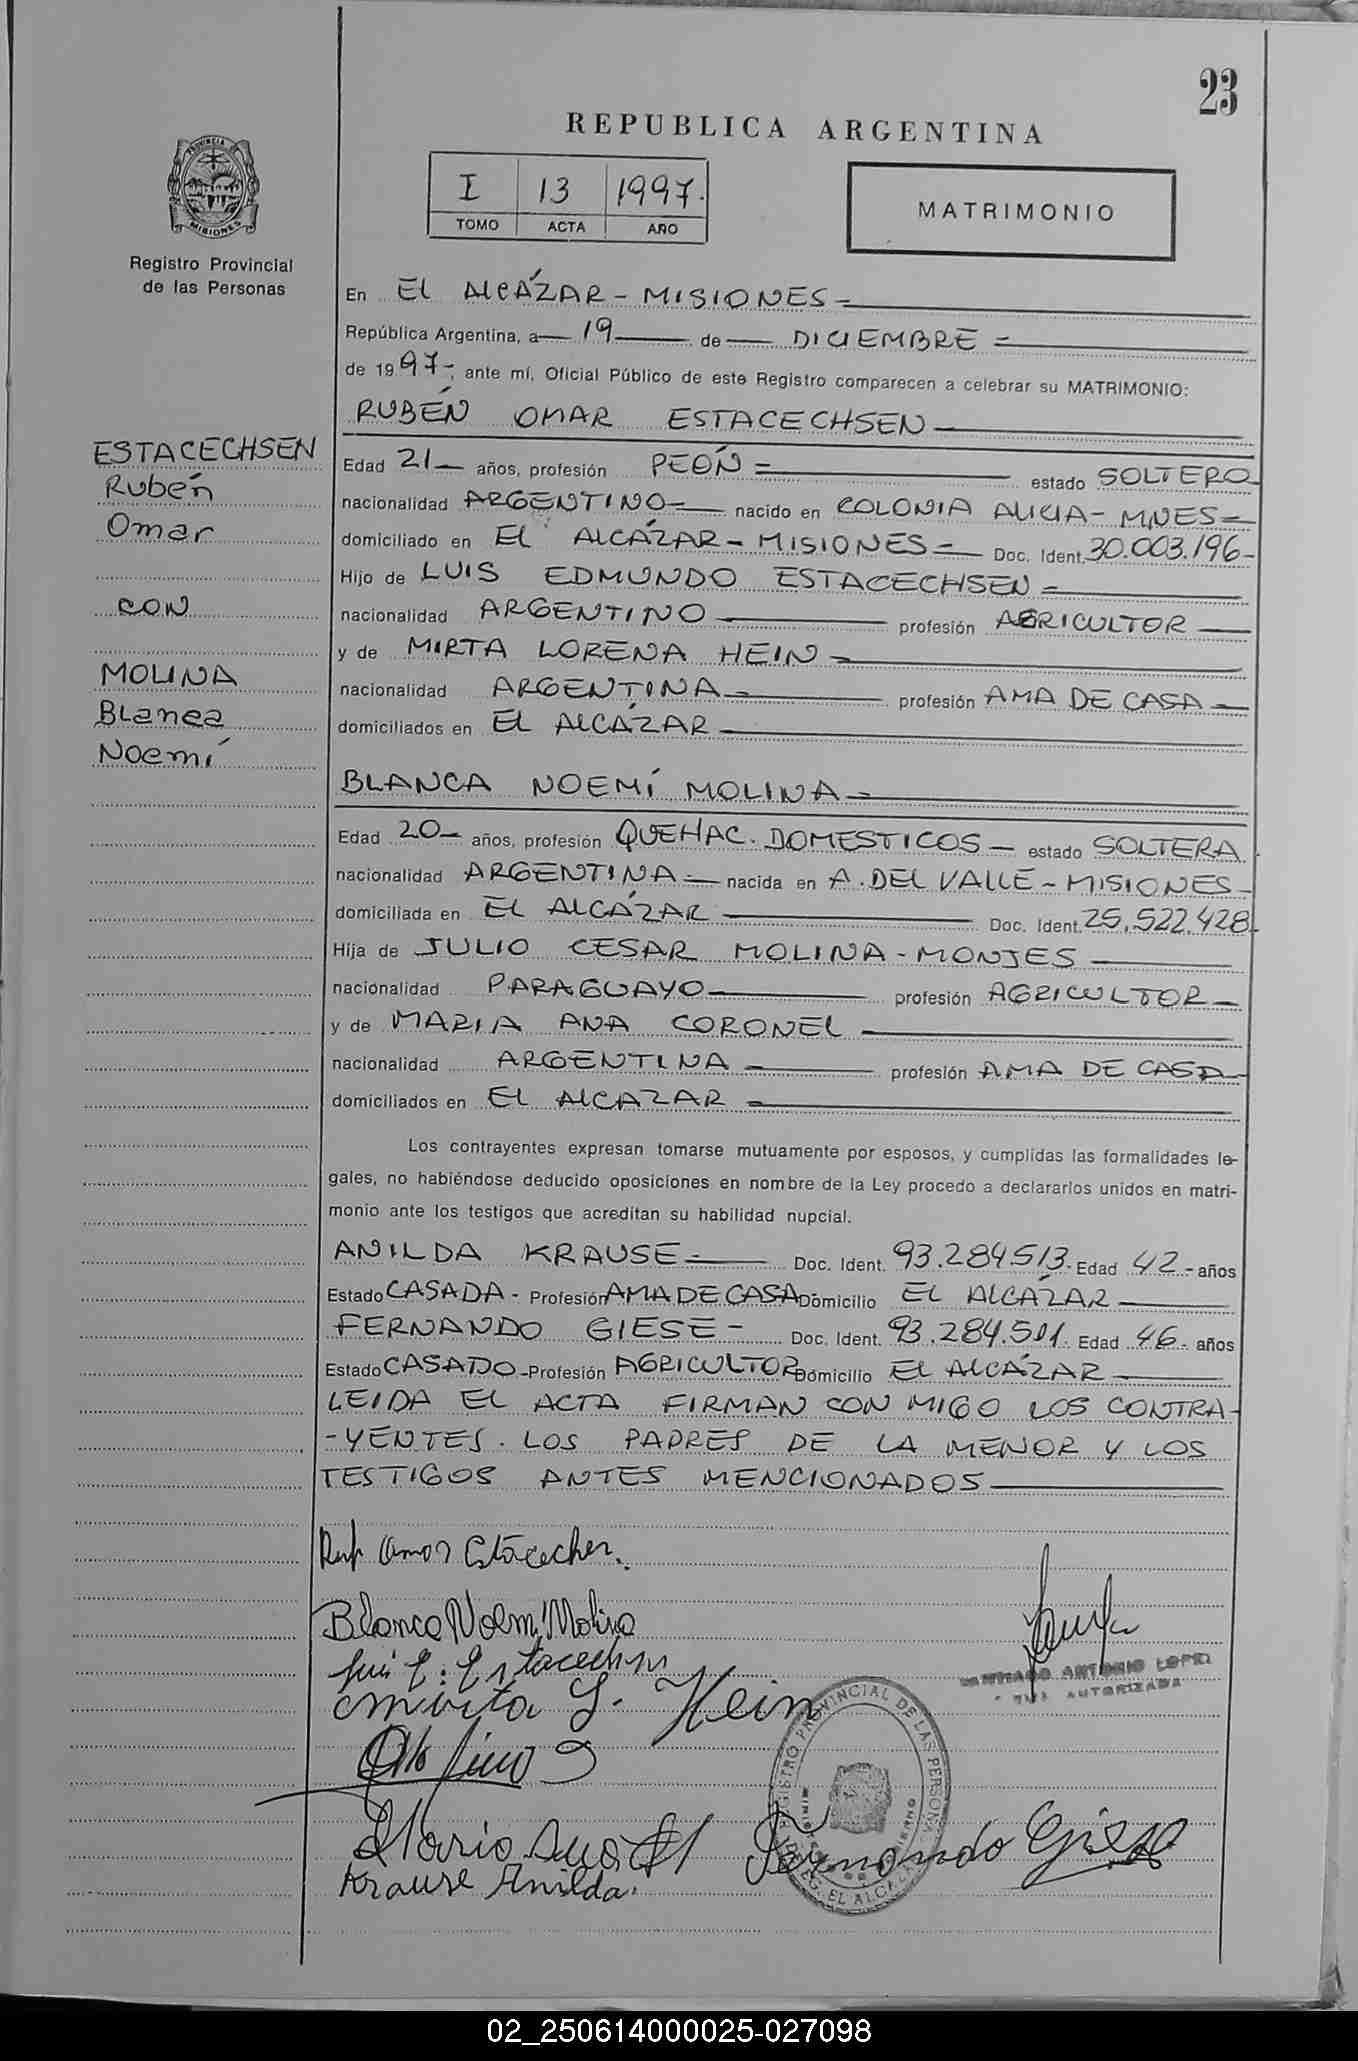 23
REPUBLICA ARGENTINA
I 13 1997.
TOMO ACTA AÑO
MATRIMONIO
PROVINCIA DE MISIONES
Registro Provincial
de las Personas
En EL ALCÁZAR - MISIONES =
República Argentina, a — 19 — de — DICIEMBRE =
de 1997-, ante mí, Oficial Público de este Registro comparecen a celebrar su MATRIMONIO:
RUBÉN OMAR ESTACECHSEN —
ESTACECHSEN
Rubén
Omar
CON
MOLINA
Blanca
Noemí
Edad 21 — años, profesión PEÓN = estado SOLTERO
nacionalidad ARGENTINO — nacido en COLONIA ALICIA - MNES =
domiciliado en EL ALCÁZAR - MISIONES = Doc. Ident. 30.003.196-
Hijo de LUIS EDMUNDO ESTACECHSEN =
nacionalidad ARGENTINO — profesión AGRICULTOR —
y de MIRTA LORENA HEIN =
nacionalidad ARGENTINA — profesión AMA DE CASA —
domiciliados en EL ALCÁZAR —
BLANCA NOEMÍ MOLINA =
Edad 20 — años, profesión QUEHAC. DOMESTICOS — estado SOLTERA
nacionalidad ARGENTINA = nacida en A. DEL VALLE - MISIONES -
domiciliada en EL ALCÁZAR — Doc. Ident. 25.522.428
Hija de JULIO CESAR MOLINA - MONJES —
nacionalidad PARAGUAYO — profesión AGRICULTOR —
y de MARIA ANA CORONEL —
nacionalidad ARGENTINA — profesión AMA DE CASA
domiciliados en EL ALCAZAR =
Los contrayentes expresan tomarse mutuamente por esposos, y cumplidas las formalidades le-
gales, no habiéndose deducido oposiciones en nombre de la Ley procedo a declararlos unidos en matri-
monio ante los testigos que acreditan su habilidad nupcial.
ANILDA KRAUSE = Doc. Ident. 93.284.513- Edad 42 - años
Estado CASADA - Profesión AMA DE CASA Domicilio EL ALCÁZAR —
FERNANDO GIESE - Doc. Ident. 93.284.501. Edad 46 - años
Estado CASADO - Profesión AGRICULTOR Domicilio EL ALCÁZAR —
LEIDA EL ACTA FIRMAN CON MIGO LOS CONTRA-
-YENTES. LOS PADRES DE LA MENOR Y LOS
TESTIGOS ANTES MENCIONADOS —
Omar Estacechen.
Blanca Noemi Molina
Luis E. Estacechsen
mirta L. Hein
SANTIAGO ANTONIO LOPEZ
AUTORIZADA
REGISTRO PROVINCIAL DE LAS PERSONAS
DELEG. EL ALCAZAR
Maria Ana
Fernando Giese
Krause Anilda.
02_250614000025-027098